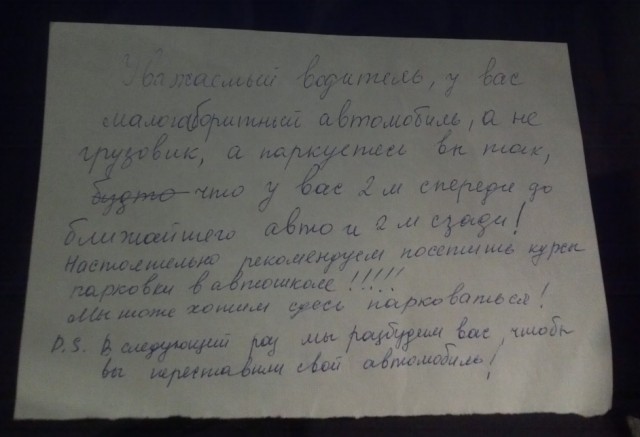 Уважаемый водитель, у вас
малогаборитный автомобиль, а не
грузовик, а паркуетесь вы так,
будто что у вас 2 м спереди до
ближайшего авто и 2 м сзади!
Настоятельно рекомендуем посетить курсы
парковки в автошколе!!!!!
Мы тоже хотим здесь парковаться!
P.S. В следующий раз мы разбудим вас, чтобы
вы переставили свой автомобиль!